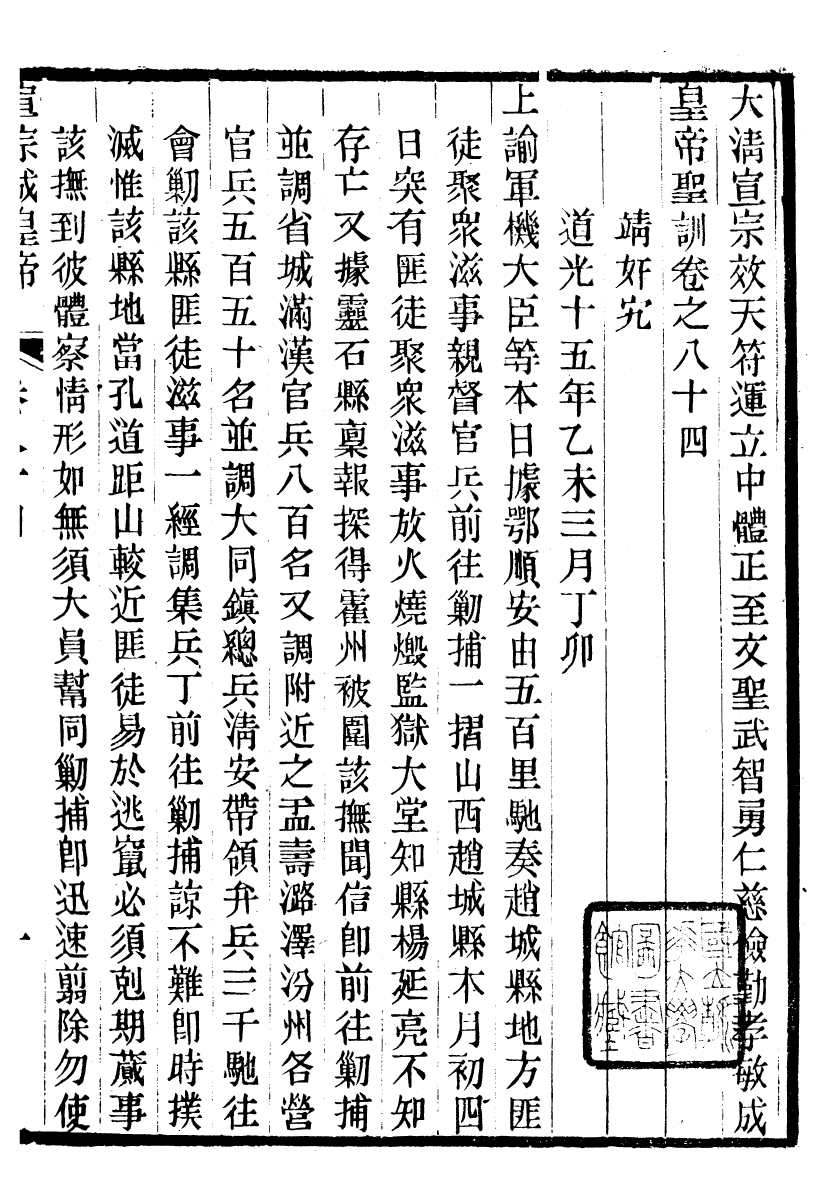 大清宣宗效天符運立中體正至文聖武智勇仁慈儉勤孝敏成
皇帝聖訓卷之八十四
靖奸宄
道光十五年乙未三月丁卯
上諭軍機大臣等本日據鄂順安由五百里馳奏趙城縣地方匪
徒聚衆滋事親督官兵前往勦捕一摺山西趙城縣本月初四
日突有匪徒聚衆滋事放火燒燬監獄大堂知縣楊延亮不知
存亡又據靈石縣稟報探得霍州被圍該撫聞信卽前往勦捕
並調省城滿漢官兵八百名又調附近之盂壽潞澤汾州各營
官兵五百五十名並調大同鎭總兵清安帶領弁兵三千馳往
會勦該縣匪徒滋事一經調集兵丁前往勦捕諒不難卽時撲
滅惟該縣地當孔道距山較近匪徒易於逃竄必須剋期蕆事
該撫到彼體察情形如無須大員幫同勦捕卽迅速翦除勿使
宣宗成皇帝 卷八十四 一
國立浙
江大學
圖書
館藏